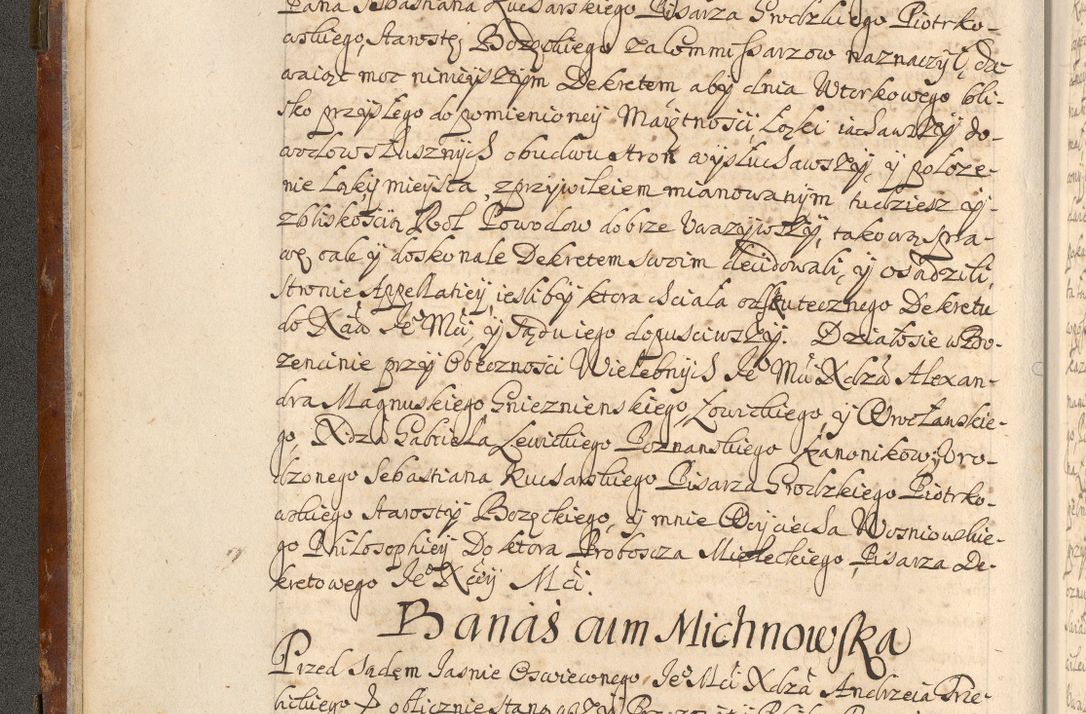 Pana Sebastiana Kucharskiego Pisarza Grodzkiego Piotrko-
wskiego, Starostę Bozęckiego za Commissarzow naznaczył, da-
waiąc moc ninieyszym Dekretem aby dnia Wtorkowego bli-
sko przyszłego do pomienioney Maiętnosci Łęki iachawszy do-
wodow słusznych obudwu stron wysłuchawszy, y położe-
nie Łąki mieysca, z przywileiem mianowanym tudziesz y
z bliskoscią Rol Powodow dobrze uwazywszy, takową spra-
wę cale y doskonale Dekretem swoim decidowali, y osądzili,
stronie Appellatiey iesliby ktora chciala od skutecznego Dekretu
do Xcia Je° Mći, y sądu iego dopusciwszy. Działosie w Bo-
zencinie przy Obecznosci Wielebnych Je° Mći Xdza Alexan-
dra Magnuskiego Gnieznienskiego, Łowickiego, y Wrocłanskie-
go, Xdza Gabriela Lewickiego Poznanskiego Kanonikow, Uro-
dzonego Sebastiana Kucharskiego Pisarza Grodzkiego Piotrko-
wskiego Starosty Bozęckiego, y mnie Woyciecha Wosniowskie-
go Philosophiey Doktora Proboscza Mieleckiego, Pisarza De-
kretowego Je° Xcey Mći.
Banaś cum Michnowska
Przed sądem Jasnie Oswieconego Je° Mći Xdza Andrzeia Trze-
bickiego